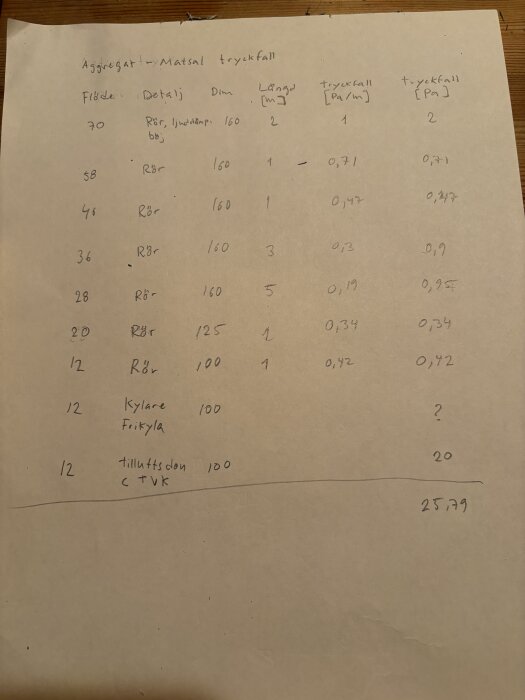 Aggregat - Matsal tryckfall
Flöde Detalj Dim Längd [m] tryckfall [Pa/m] tryckfall [Pa]
70 Rör, ljuddämp. böj 160 2 1 2
58 Rör 160 1 - 0,71 0,71
46 Rör 160 1 0,47 0,47
36 Rör 160 3 0,3 0,9
28 Rör 160 5 0,19 0,95
20 Rör 125 1 0,34 0,34
12 Rör 100 1 0,42 0,42
12 Kylare Frikyla 100 ?
12 tilluftsdon CTVK 100 20
25,79